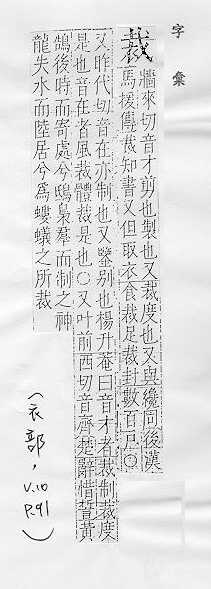 字彙
裁
牆來切音才剪也製也又裁度也又與纔同後漢
馬援傳裁知書又但取衣食裁足裁封數百戶○
又昨代切音在亦制也又鑒別也楊升菴曰音才者裁制裁度
是也音在者風裁體裁是也○又叶前西切音齊楚辭惜誓黃
鵠後時而寄處兮鴟梟羣而制之神
龍失水而陸居兮爲螻蟻之所裁
(衣部,
V.10
P.91)